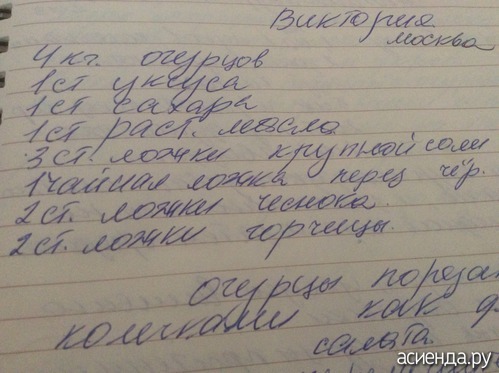 Виктория
москва
4 кг. огурцов
1 ст уксуса
1 ст сахара
1 ст раст. масла
3 ст. ложки крупной соли
1 чайная ложка перец чёр.
2 ст. ложки чеснока.
2 ст. ложки горчицы.
огурцы пореза
колечками как д
салата.
асиенда.ру